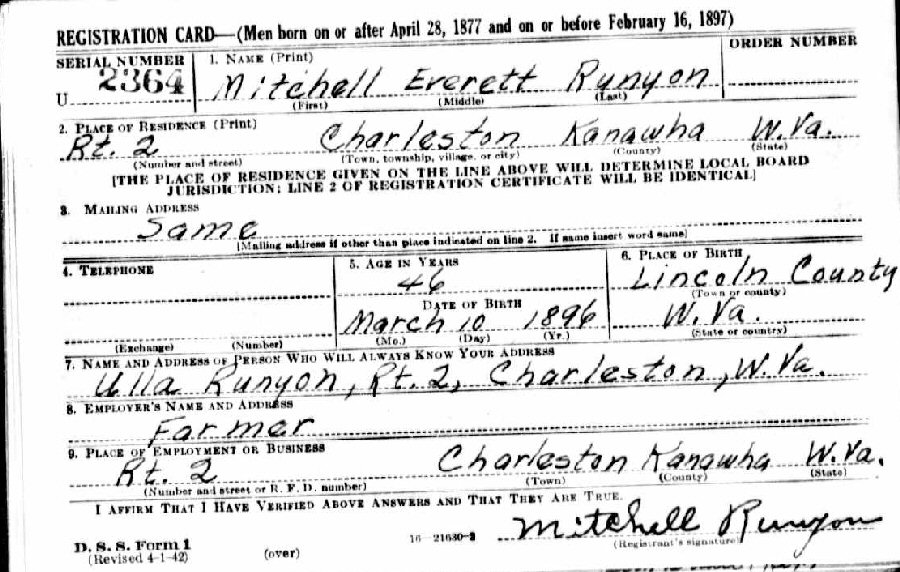 REGISTRATION CARD—(Men born on or after April 28, 1877 and on or before February 16, 1897)
SERIAL NUMBER 1. NAME (Print) ORDER NUMBER
U 2364 Mitchell Everett Runyon
(First) (Middle) (Last)
2. PLACE OF RESIDENCE (Print)
Rt. 2 Charleston Kanawha W.Va.
(Number and street) (Town, township, village, or city) (County) (State)
[THE PLACE OF RESIDENCE GIVEN ON THE LINE ABOVE WILL DETERMINE LOCAL BOARD
JURISDICTION; LINE 2 OF REGISTRATION CERTIFICATE WILL BE IDENTICAL]
3. MAILING ADDRESS
Same
[Mailing address if other than place indicated on line 2. If same insert word same]
4. TELEPHONE 5. AGE IN YEARS 6. PLACE OF BIRTH
46 Lincoln County
(Town or county)
DATE OF BIRTH
March 10 1896 W.Va.
(Exchange) (Number) (Mo.) (Day) (Yr.) (State or country)
7. NAME AND ADDRESS OF PERSON WHO WILL ALWAYS KNOW YOUR ADDRESS
Ulla Runyon, Rt. 2, Charleston, W.Va.
8. EMPLOYER'S NAME AND ADDRESS
Farmer
9. PLACE OF EMPLOYMENT OR BUSINESS
Rt. 2 Charleston Kanawha W.Va.
(Number and street or R. F. D. number) (Town) (County) (State)
I AFFIRM THAT I HAVE VERIFIED ABOVE ANSWERS AND THAT THEY ARE TRUE.
Mitchell Runyon
D. S. S. Form 1 16—21630-2 (Registrant's signature)
(Revised 4-1-42) (over)